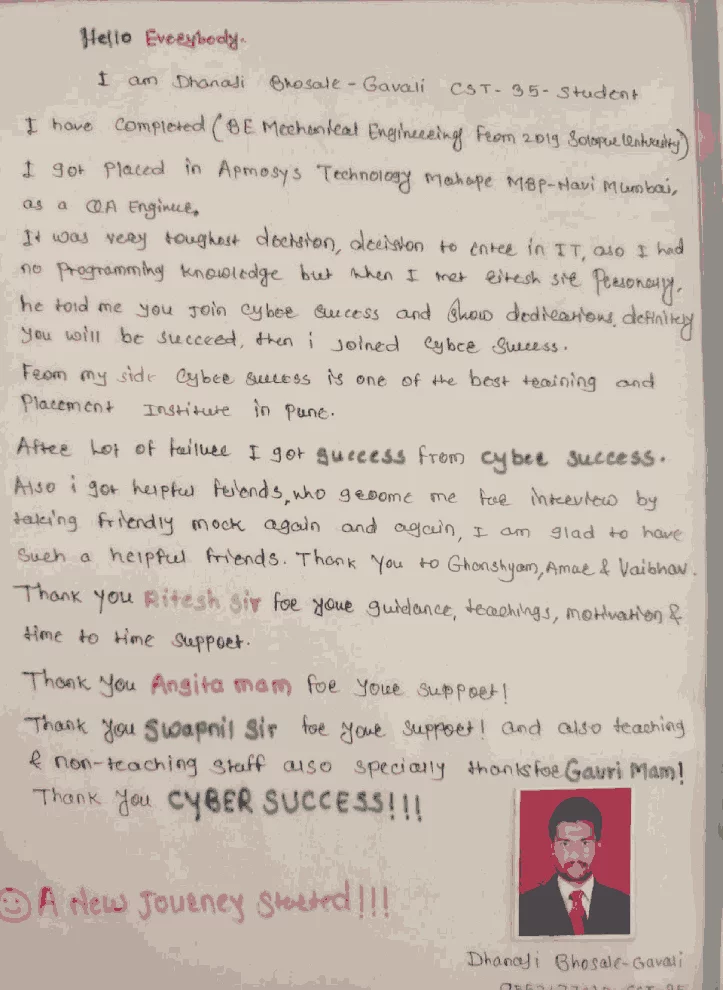 Hello Everybody.
I am Dhanaji Bhosale-Gavali CST-35-Student
I have completed (BE Mechanical Engineering From 2019 Solapur University)
I got Placed in Apmosys Technology Mahape MBP-Navi Mumbai,
as a QA Engineer.
It was very toughest decision, decision to enter in IT, also I had
no Programming knowledge but when I met Ritesh sir Personaly,
he told me you join cyber success and show dedications, definitely
you will be succeed, then i joined Cyber Success.
From my side Cyber success is one of the best training and
Placement Institute in Pune.
After Lot of failure I got success from cyber success.
Also i got helpful friends, who groome me for interview by
taking friendly mock again and again, I am glad to have
such a helpful friends. Thank You to Ghanshyam, Amar & Vaibhav.
Thank you Ritesh Sir for your guidance, teachings, motivation &
time to time support.
Thank You Angita mam for your support!
Thank You Swapnil Sir for your support! and also teaching
& non-teaching staff also specially thanks for Gauri Mam!
Thank You CYBER SUCCESS!!!
A New Journey Started!!!
Dhanaji Bhosale-Gavali